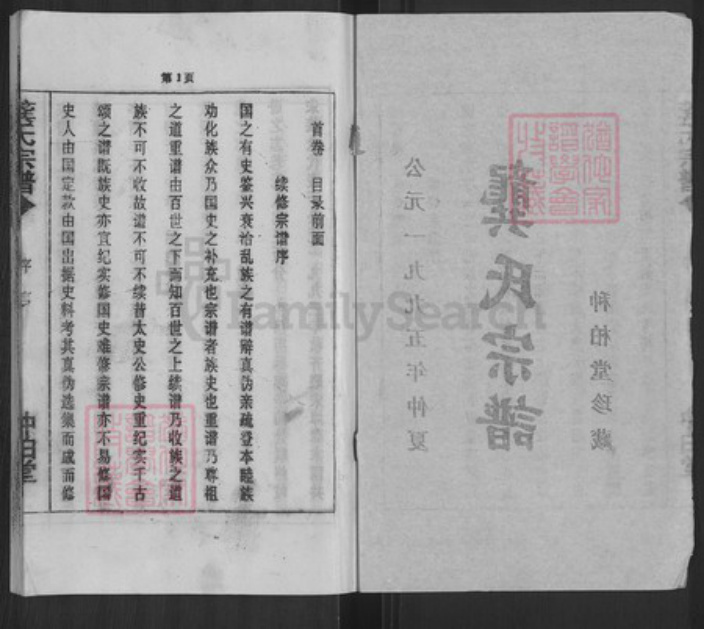 种柏堂珍藏
龔氏宗譜
公元一九九五年仲夏
第1页
首卷 目录前面
续修宗谱序
国之有史鉴兴衰治乱族之有谱辩真伪亲疏登本睦族
劝化族众乃国史之补充也宗谱者族史也重谱乃尊祖
之道重谱由百世之下而知百世之上续谱乃收族之道
族不可不收故谱不可不续昔太史公修史重纪实千古
颂之谱既族史亦宜纪实修国史难修宗谱亦不易修国
史人由国定款由国出据史料考其真伪选集而成而修
龚氏宗谱
序
种柏堂
FamilySearch